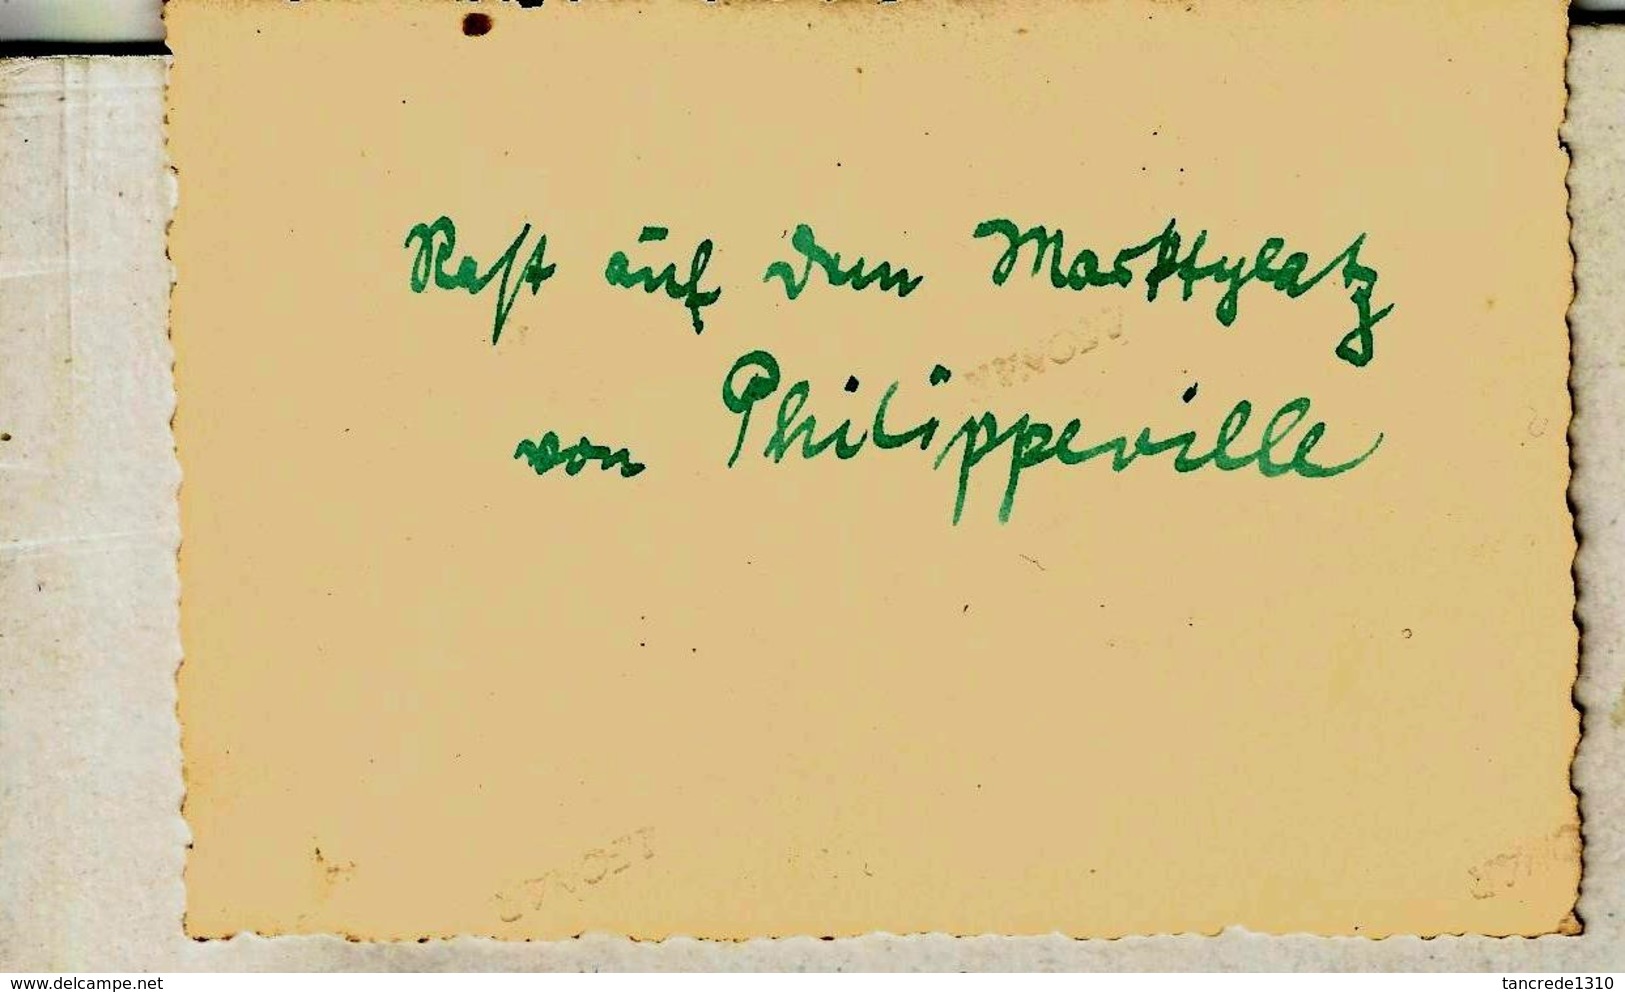 Rast auf dem Marktplatz
von Philippeville
www.delcampe.net
tancrede1310